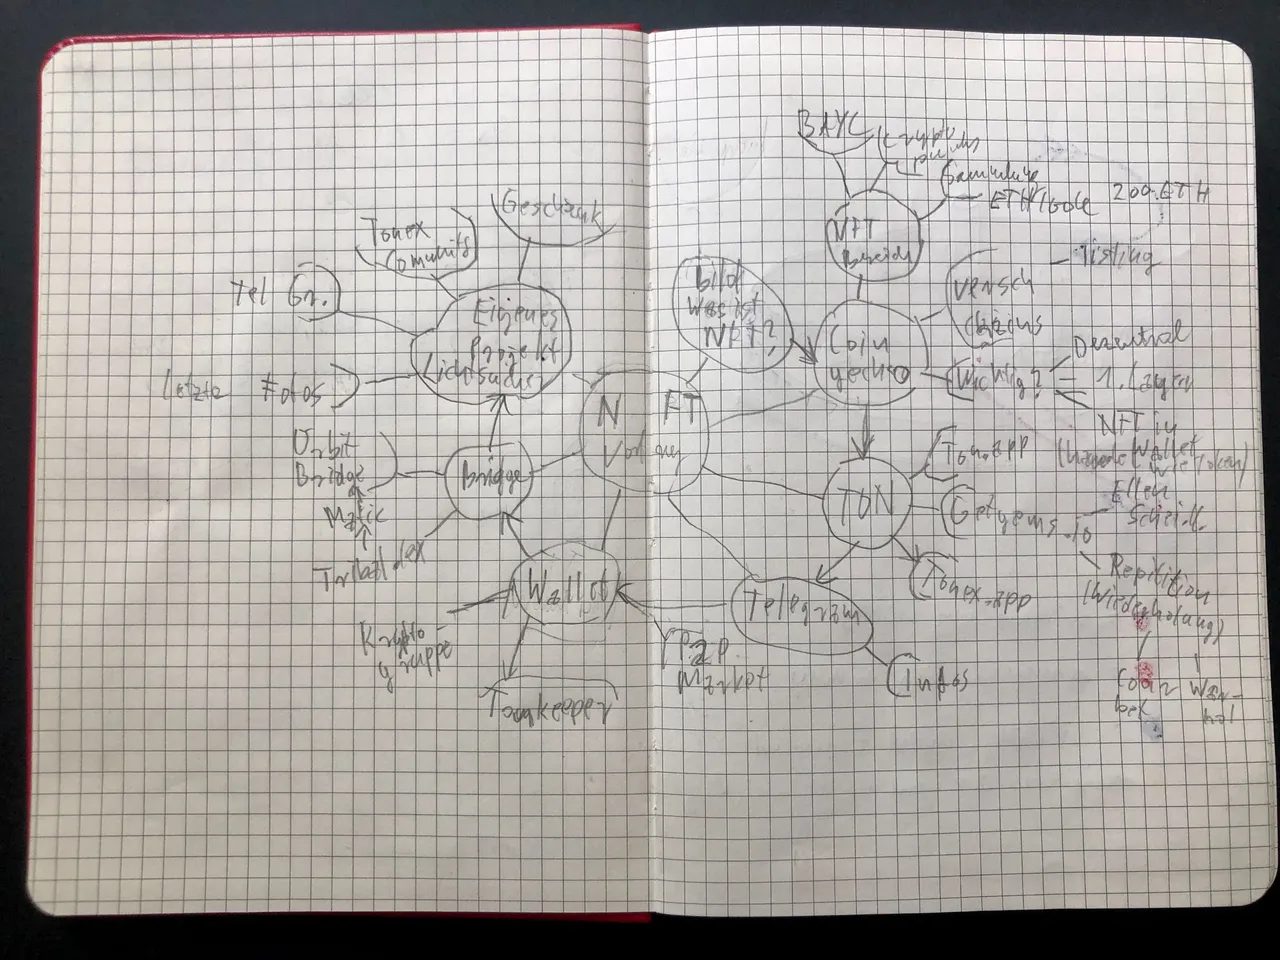 Geschenk
Tonex
Comunity
Tel Gr.
Eigenes
Projekt
Lichtsucher
Letzte Fotos
Orbit
Bridge
Matic
Bridge
Krypto
gruppe
Wallet
Tonkeeper
N FT
Vortrag
P2P
Market
Telegram
Infos
TON
Ton.app
Getgems.io
Tonex.app
Bild
Was ist
NFT?
Coin
gecko
NFT
Bereich
BAYC
Crypto
punks
Sammlung
ETH Code 200 ETH
versch
Listing
Wichtig?
Dezentral
1. Layer
NFT in
wie Token)
Repitition
(Wiederholung)
War-
hol